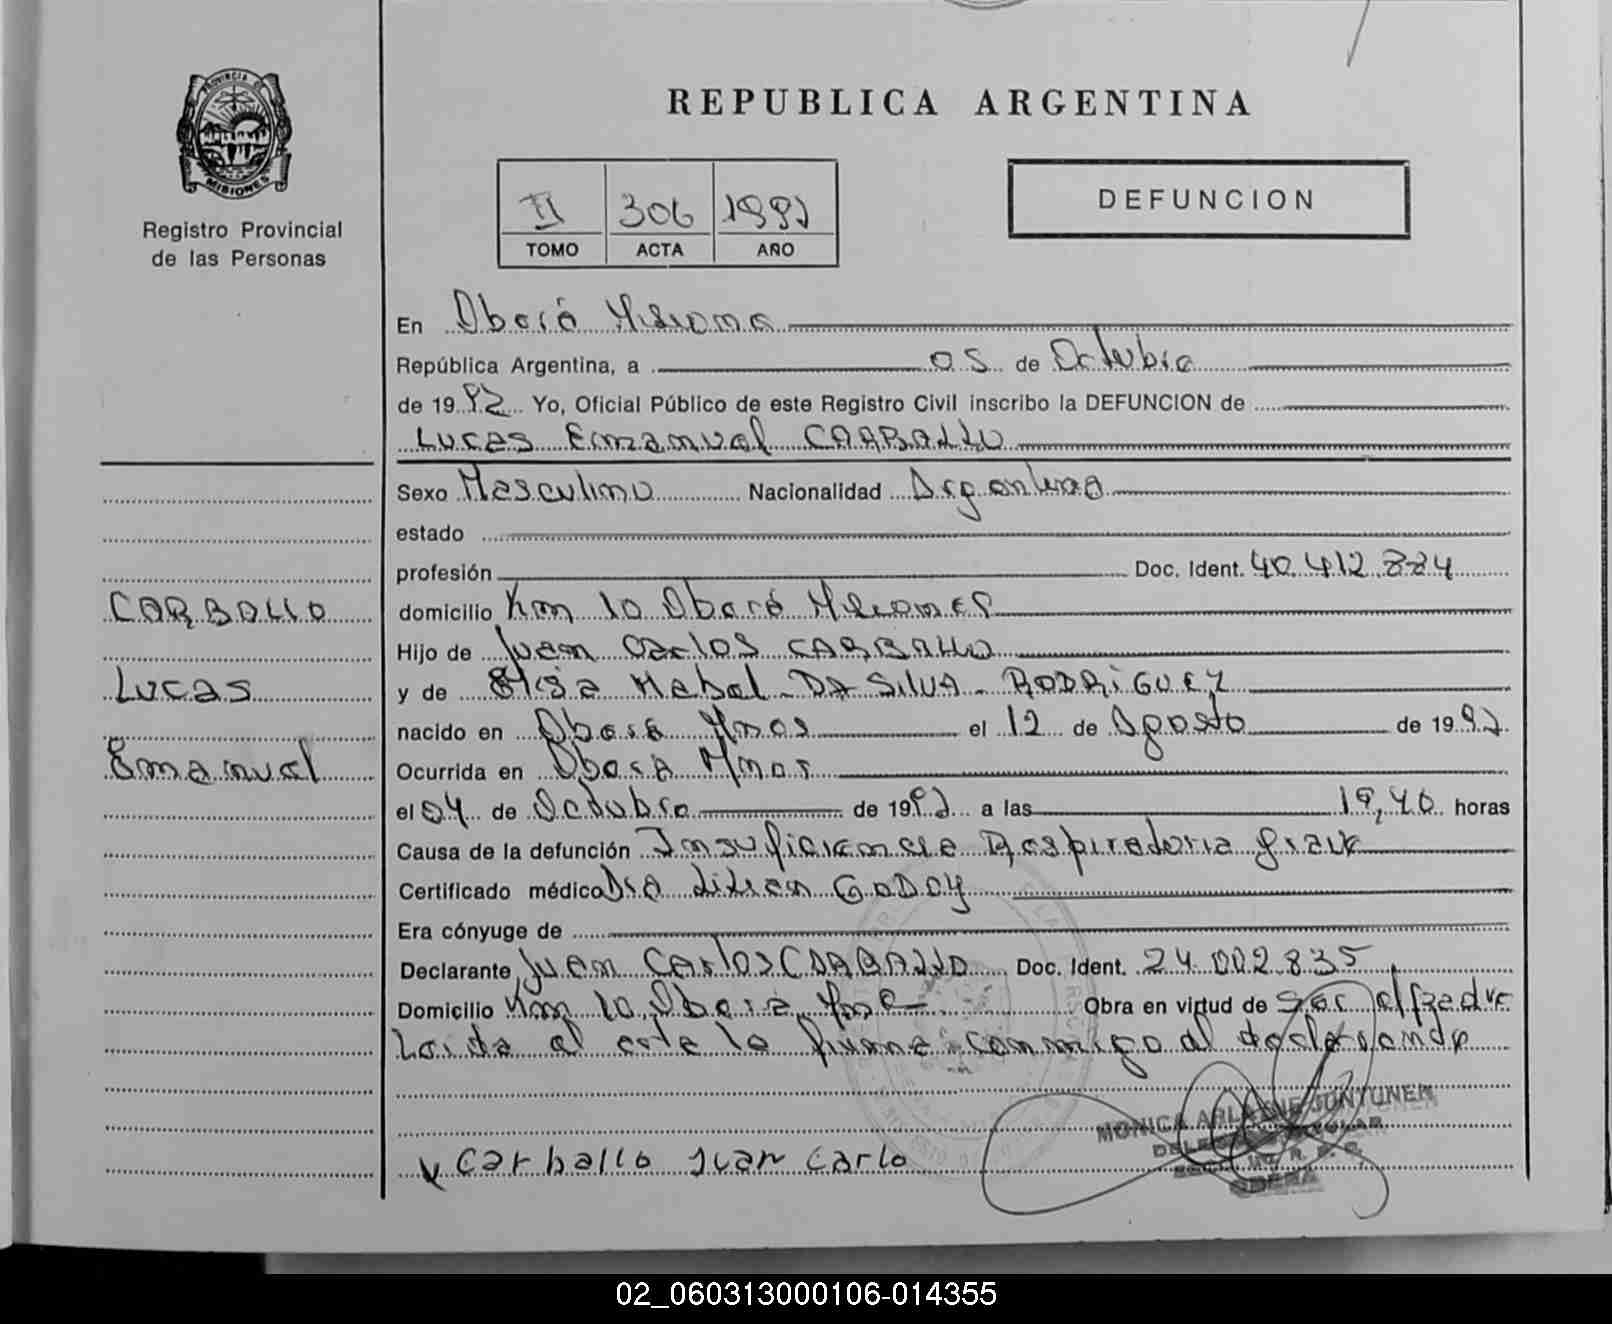 PROVINCIA DE
MISIONES
Registro Provincial
de las Personas
REPUBLICA ARGENTINA
II 306 1992
TOMO ACTA AÑO
DEFUNCION
En Oberá Misiones
República Argentina, a 05 de Octubre
de 1992 Yo, Oficial Público de este Registro Civil inscribo la DEFUNCION de
Lucas Emanuel CARBALLO
Sexo Masculino Nacionalidad Argentina
estado
profesión Doc. Ident. 40.412.884
domicilio Km 10 Oberá Misiones
Hijo de Juan Carlos CARBALLO
y de Mabel DA SILVA RODRIGUEZ
nacido en Oberá Mnes el 12 de Agosto de 1992
Ocurrida en Oberá Mnes
el 04 de Octubre de 1992 a las 19,40 horas
Causa de la defunción Insuficiencia Respiratoria grave
Certificado médico Dra Lilian GODOY
Era cónyuge de
Declarante Juan Carlos CARBALLO Doc. Ident. 24.002.835
Domicilio Km 10 Oberá Mnes Obra en virtud de ser el padre
Leida el acta la firma conmigo el declarante
CARBALLO
Lucas
Emanuel
Carballo Juan Carlo
MONICA JUNTUNEN
OBERA
02_060313000106-014355